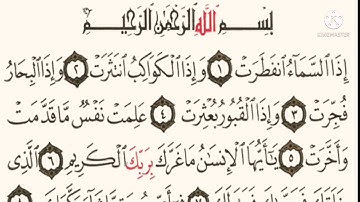 بِسْمِ اللَّهِ الرَّحْمَٰنِ الرَّحِيمِ
إِذَا السَّمَاءُ انفَطَرَتْ ١ وَإِذَا الْكَوَاكِبُ انتَثَرَتْ ٢ وَإِذَا الْبِحَارُ
فُجِّرَتْ ٣ وَإِذَا الْقُبُورُ بُعْثِرَتْ ٤ عَلِمَتْ نَفْسٌ مَّا قَدَّمَتْ
وَأَخَّرَتْ ٥ يَا أَيُّهَا الْإِنسَانُ مَا غَرَّكَ بِرَبِّكَ الْكَرِيمِ ٦ الَّذِي